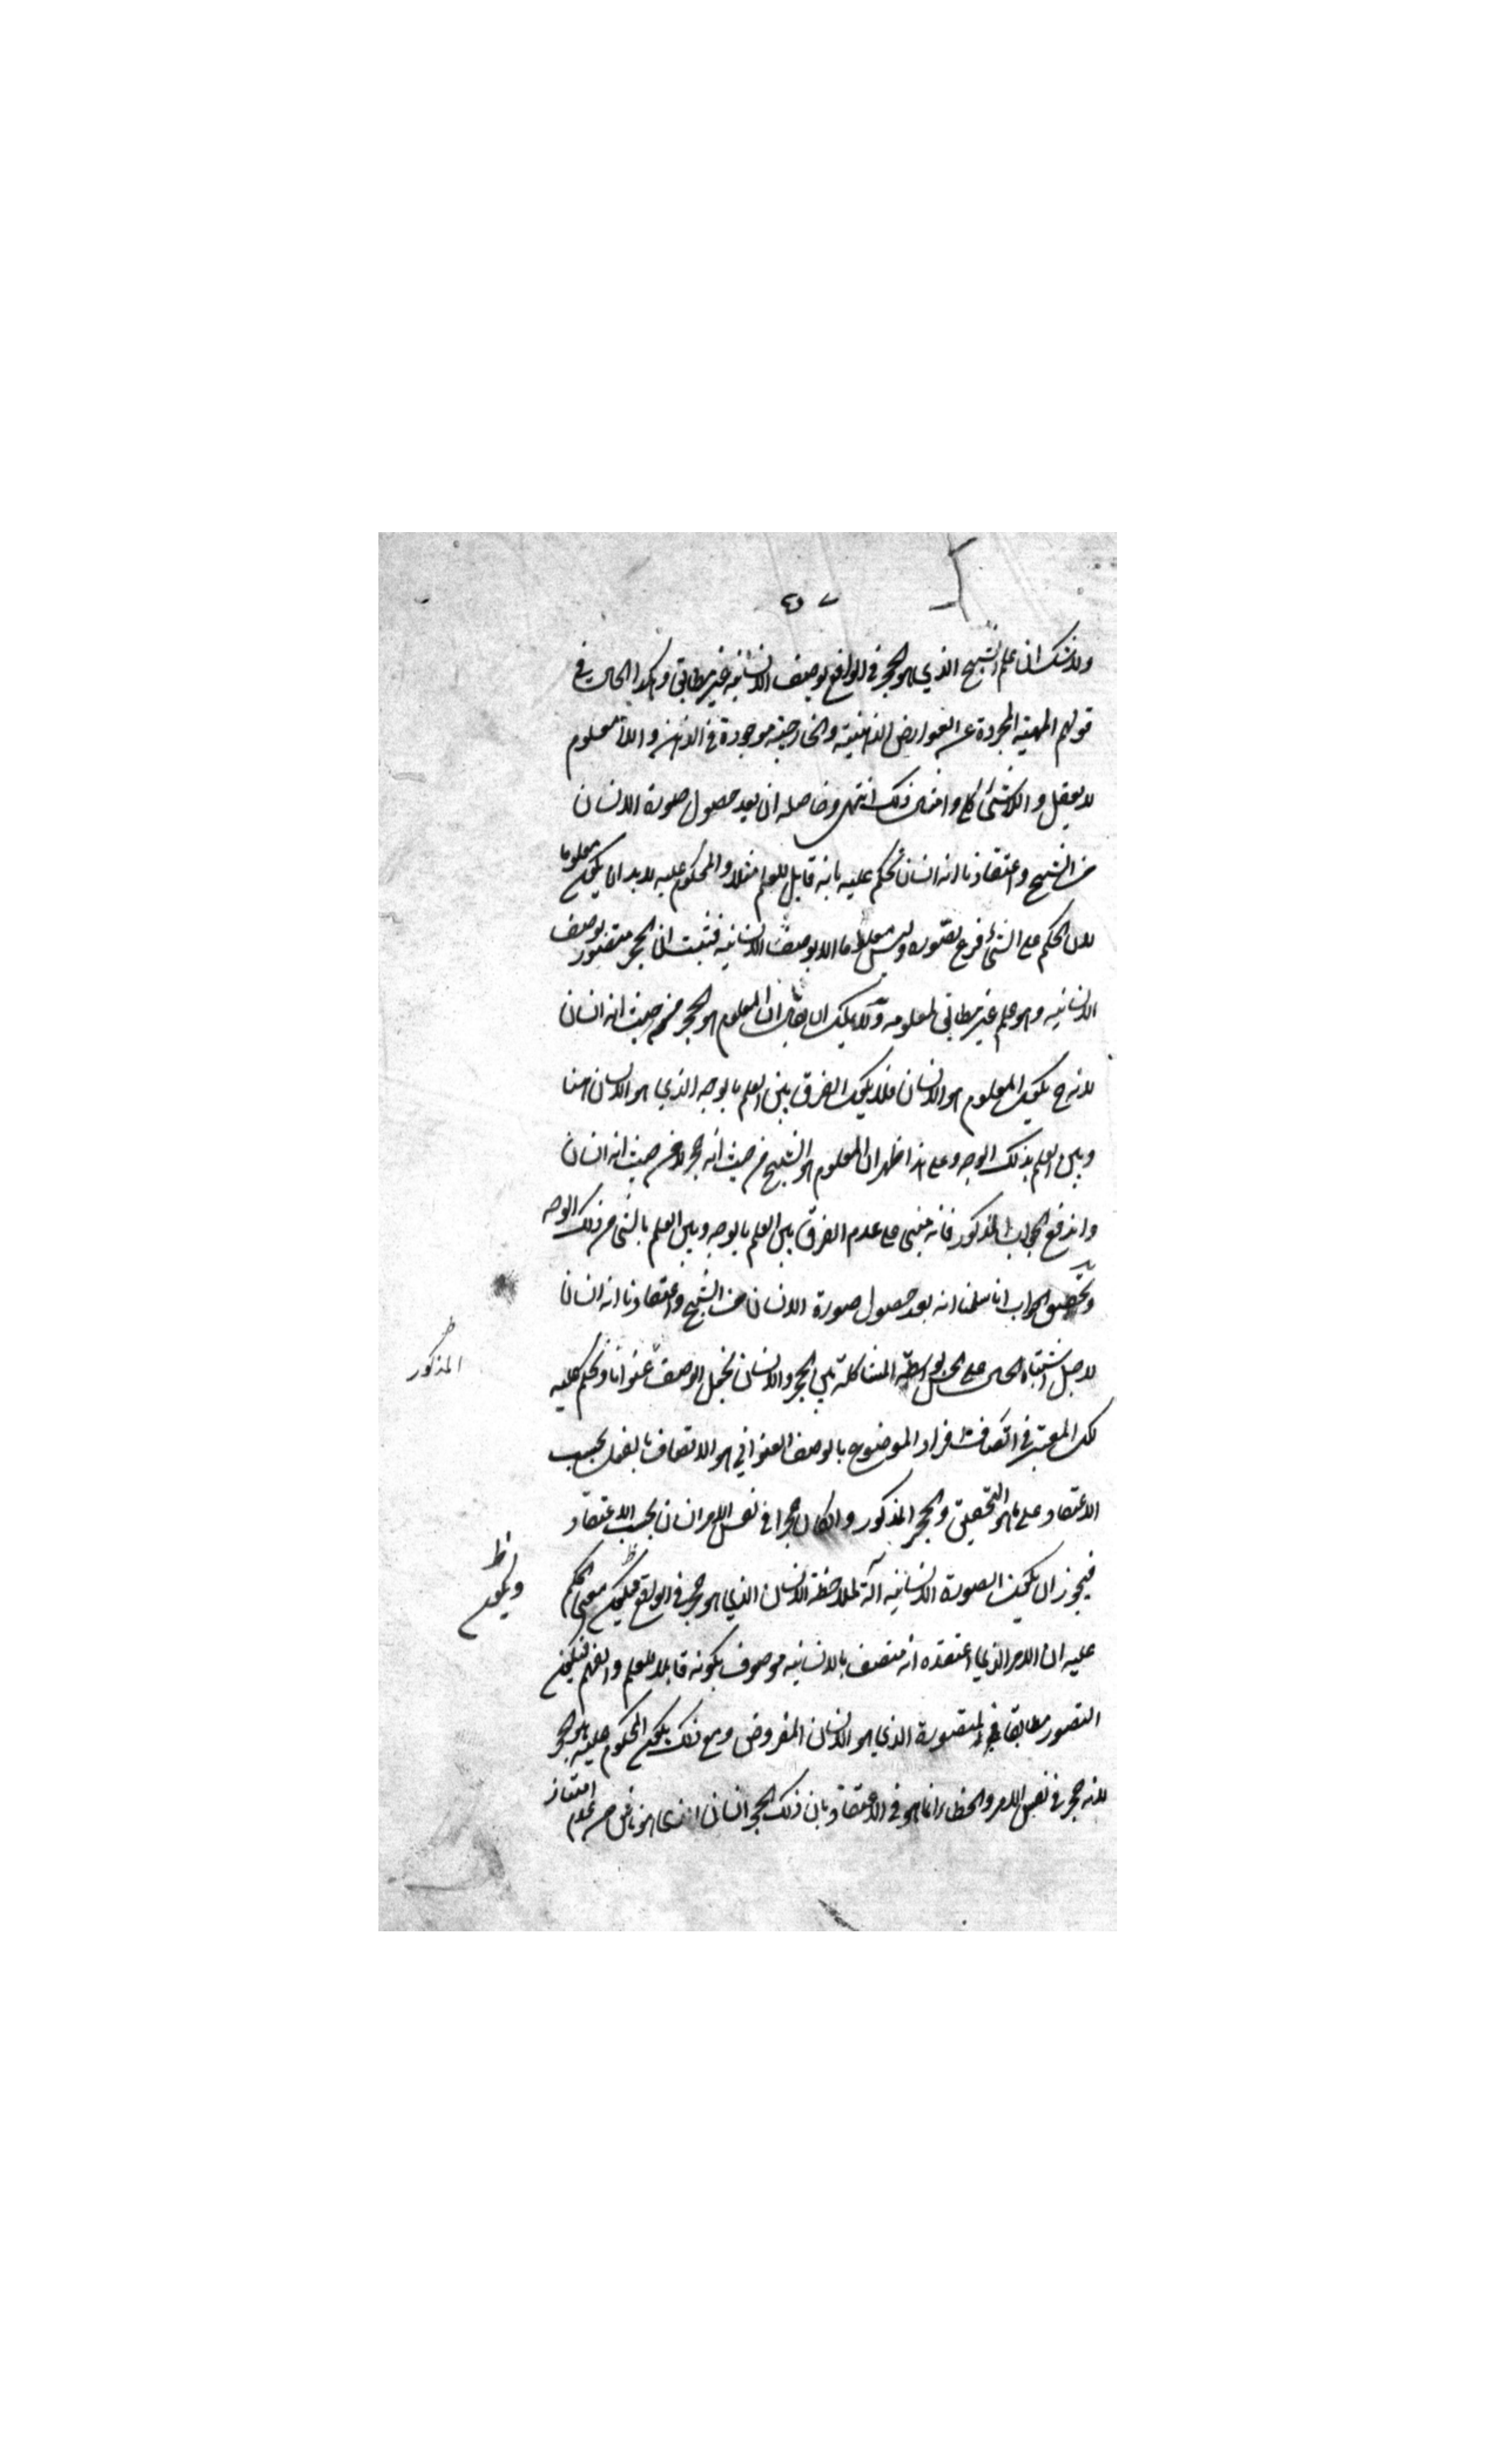 ولا شك ان علم الشبح الذي هو الحجر في الواقع بوصف الانسانية غير مطابق وهكذا الحال في
قولهم المهية المجردة عن العوارض الذهنية والخارجية موجودة في الذهن واللا معلوم
لا يعقل واللاشئ كلي وامثال ذلك انتهى وحاصله ان بعد حصول صورة الانسان
من الشبح واعتقادنا انه انسان نحكم عليه بانه قابل للعلم مثلا والمحكوم عليه لا بد ان يكون معلوما
لان الحكم على الشئ فرع تصوره وليس معلوما الا بوصف الانسانية فثبت ان الحجر متصور بوصف
الانسانية وهو علم غير مطابق لمعلومه ولا يمكن ان يقال ان المعلوم هو الحجر من حيث انه انسان
لانه ح يكون المعلوم هو الانسان فلا يكون الفرق بين العلم بالوجه الذي هو الانسان هنا
وبين العلم بذلك الوجه وعلى هذا ظهر ان المعلوم هو الشبح من حيث انه حجر لا من حيث انه انسان
واندفع الجواب المذكور فانه مبني على عدم الفرق بين العلم بالوجه وبين العلم بالشئ من ذلك الوجه
وتحقيق الجواب انا سلمنا انه بعد حصول صورة الانسان من الشبح واعتقادنا انه انسان
لاجل اشتباه الحال على الحس بواسطة المشاكلة بين الحجر والانسان نجعل الوصف عنوانا ونحكم عليه
المذكور
لكن المعتبر في اتصاف افراد الموضوع بالوصف العنواني هو الاتصاف بالفعل بحسب
الاعتقاد على ما هو التحقيق والحجر المذكور وان كان حجرا في نفس الامر انسان بحسب الاعتقاد
فيجوز ان يكون الصورة الانسانية آلة لملاحظة الانسان الذي هو حجر في الواقع فيكون معنى الحكم
ويكون
عليه ان الامر الذي اعتقده انه متصف بالانسانية موصوف بكونه قابلا للعلم والفهم فيكون
التصور مطابقا لمتصوره الذي هو الانسان المفروض ومع ذلك يكون المحكوم عليه هو الحجر
لانه حجر في نفس الامر والخطاء انما هو في الاعتقاد بان ذلك الحجر انسان الذي هو ناش من عدم امتياز